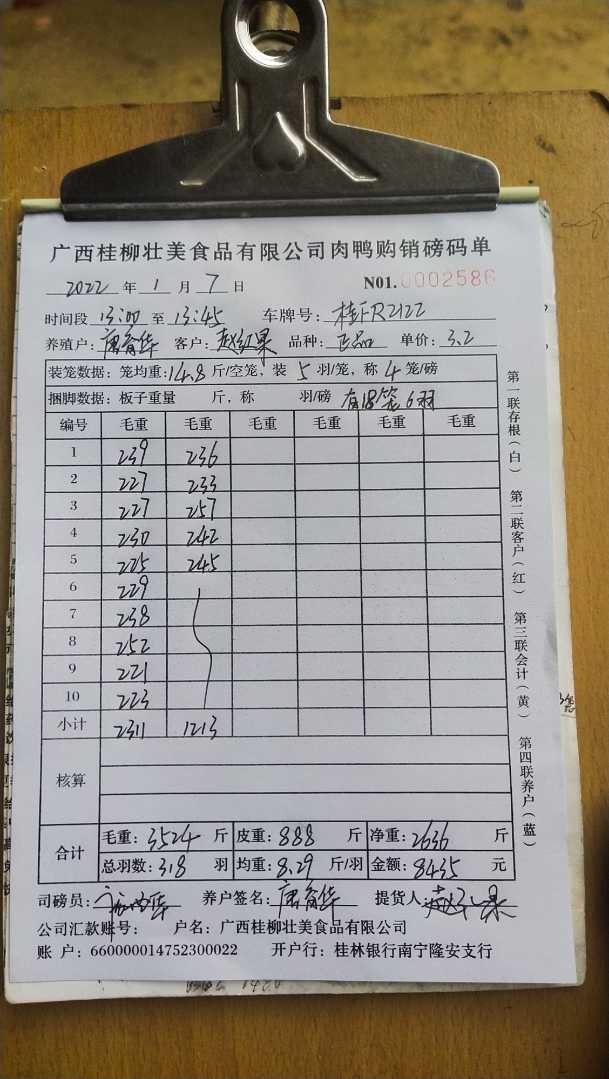 广西桂柳壮美食品有限公司肉鸭购销磅码单
2022 年 1 月 7 日 N01.0002586
时间段 13:00 至 13:45 车牌号: 桂FR2122
养殖户: 唐育华 客户: 赵红果 品种: 正品 单价: 3.2
装笼数据: 笼均重: 14.8 斤/空笼, 装 5 羽/笼, 称 4 笼/磅
捆脚数据: 板子重量 斤, 称 羽/磅 有18笼6羽
编号 毛重 毛重 毛重 毛重 毛重 毛重
1 239 236
2 227 233
3 227 257
4 230 242
5 225 245
6 229
7 238
8 252
9 221
10 223
小计 2311 1213
核算
合计 毛重: 3524 斤 皮重: 888 斤 净重: 2636 斤
总羽数: 318 羽 均重: 8.29 斤/羽 金额: 8435 元
司磅员: 养户签名: 唐育华 提货人: 赵红果
公司汇款账号: 户名: 广西桂柳壮美食品有限公司
账 户: 660000014752300022 开户行: 桂林银行南宁隆安支行
第一联存根(白) 第二联客户(红) 第三联会计(黄) 第四联养户(蓝)